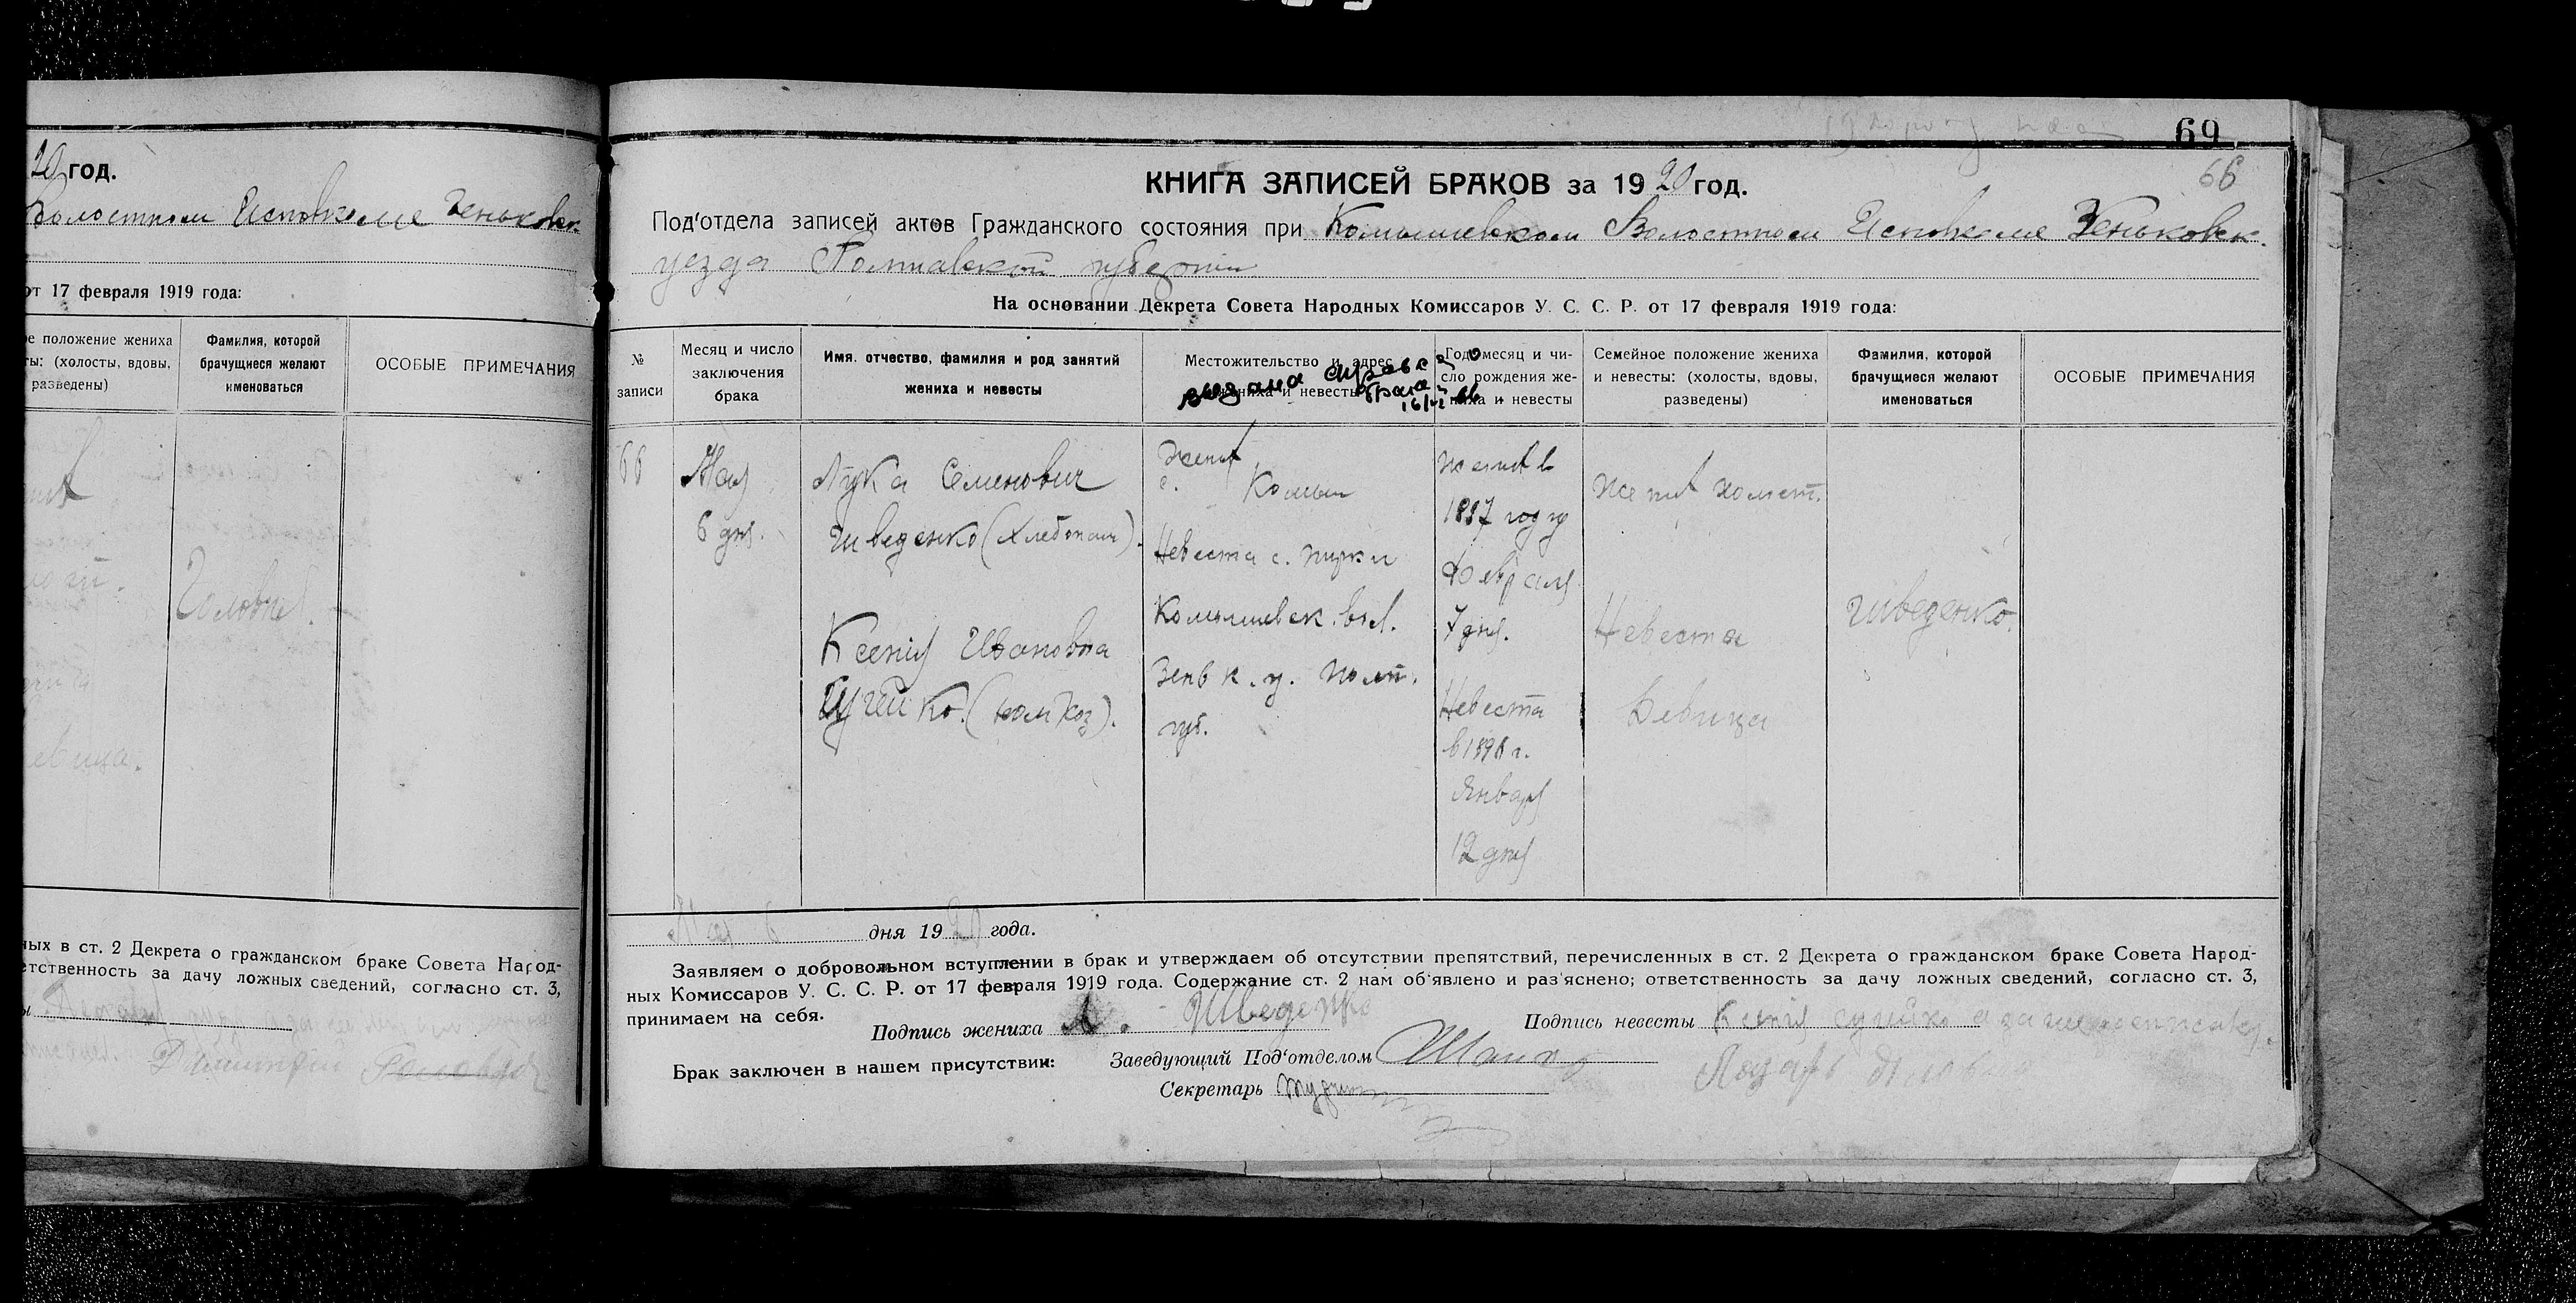 20 год.
Волостном Исповкоме Зеньковск.
от 17 февраля 1919 года:
ое положение жениха
ты: (холосты, вдовы,
разведены)
Фамилия, которой
брачущиеся желают
именоваться
ОСОБЫЕ ПРИМЕЧАНИЯ
евица.
ных в ст. 2 Декрета о гражданском браке Совета Народ-
етственность за дачу ложных сведений, согласно ст. 3,
Димитрий
69
66
КНИГА ЗАПИСЕЙ БРАКОВ за 1920 год.
Под'отдела записей актов Гражданского состояния при Комышевском Волостном Исповкоме Зеньковск.
уезда Полтавской губернии
На основании Декрета Совета Народных Комиссаров У. С. С. Р. от 17 февраля 1919 года:
№
записи
Месяц и число
заключения
брака
Имя, отчество, фамилия и род занятий
жениха и невесты
Местожительство и адрес
жениха и невесты
выдана справка
Год, месяц и чи-
сло рождения же-
ниха и невесты
Семейное положение жениха
и невесты: (холосты, вдовы,
разведены)
Фамилия, которой
брачущиеся желают
именоваться
ОСОБЫЕ ПРИМЕЧАНИЯ
66
Мая
6 дня.
Лука Семенович
Шведенко (хлебопаш).
Ксения Ивановна
Сугейко.
Жених
с. Комыш
Невеста с.
Комышевск. вол.
Зеньк. у. Полт.
губ.
жених в
1897 году
Февраля
7 дня.
Невеста
в 1898 г.
Января
12 дня
Жених холост.
Невеста
Девица
Шведенко.
Мая 6 дня 1920 года.
Заявляем о добровольном вступлении в брак и утверждаем об отсутствии препятствий, перечисленных в ст. 2 Декрета о гражданском браке Совета Народ-
ных Комиссаров У. С. С. Р. от 17 февраля 1919 года. Содержание ст. 2 нам об'явлено и раз'яснено; ответственность за дачу ложных сведений, согласно ст. 3,
принимаем на себя.
Подпись жениха Л. Шведенко
Подпись невесты Ксения
Брак заключен в нашем присутствии:
Заведующий Под'отделом
Лазарь
Секретарь